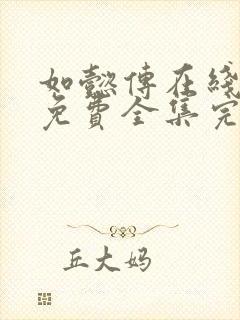 如懿傅在线
免費全集完
丘大妈